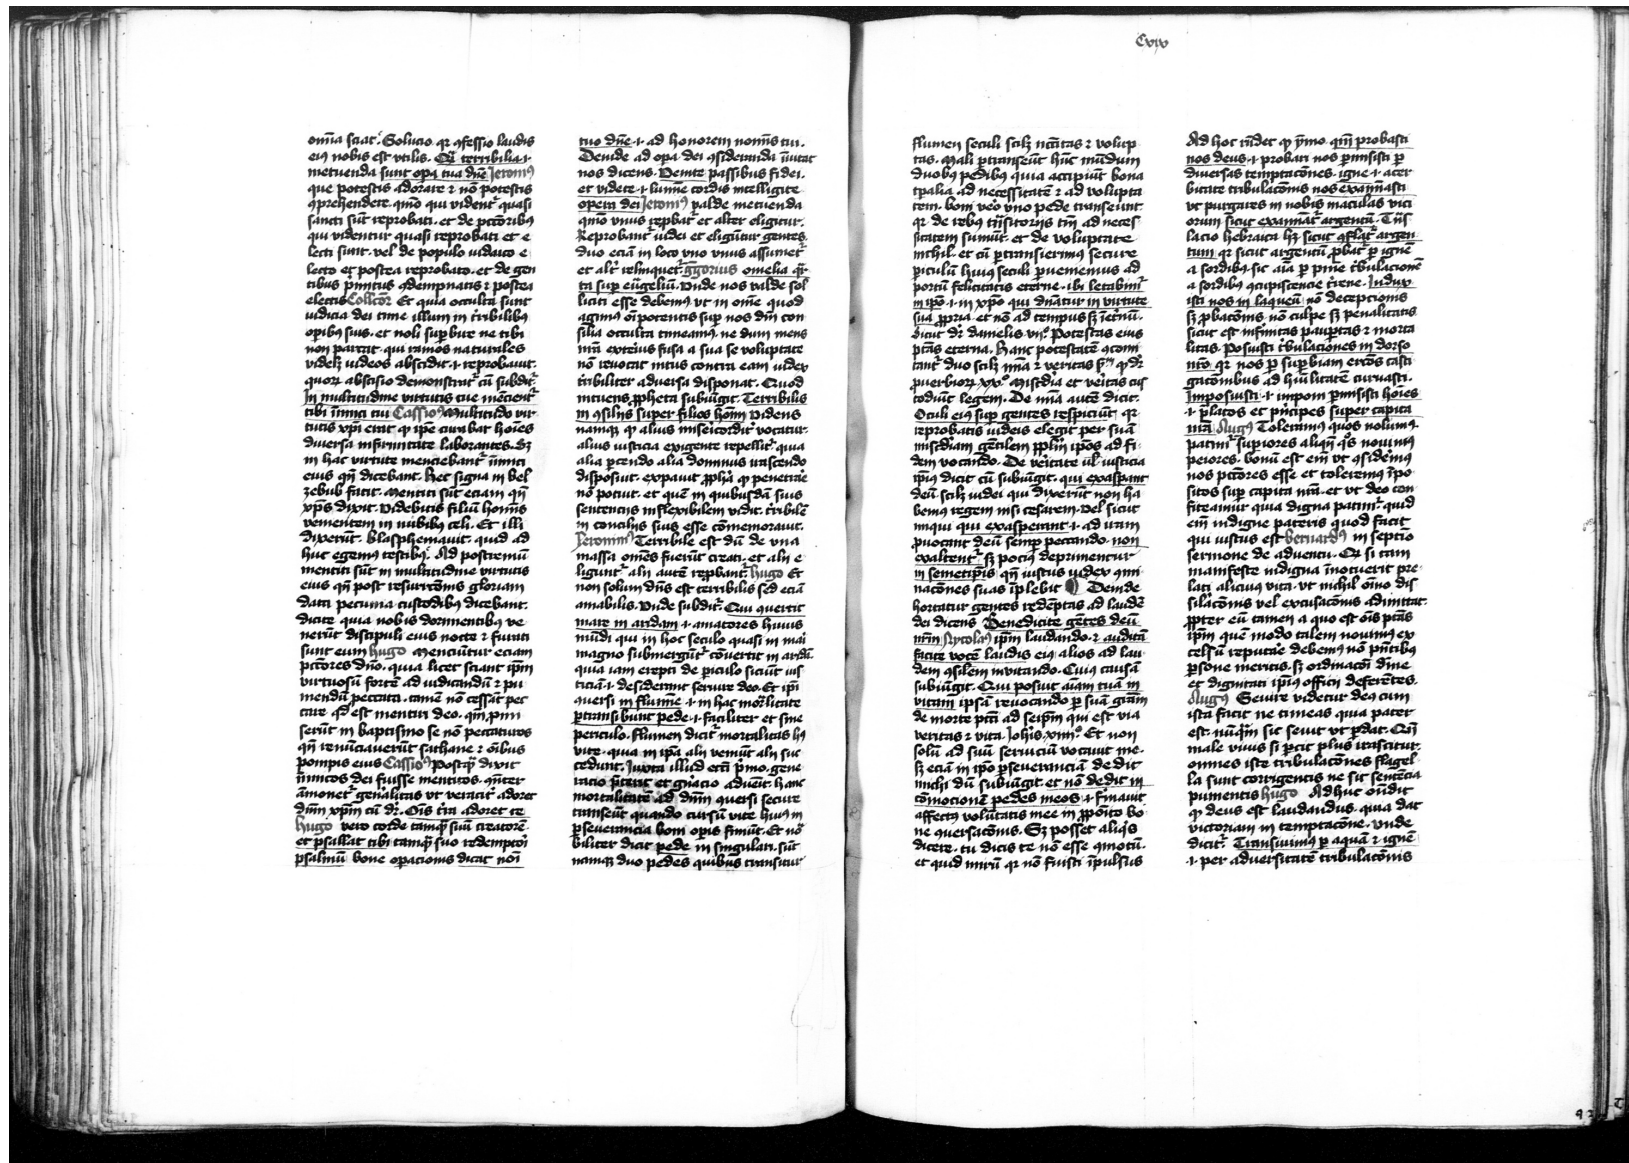 omīa sciat. Solucio qr ɔfessio laudis
eiꝰ nobis est vtilis. Qm̄ terribilia .i.
metuenda sunt opa tua dn̄e Jeronimꝰ
que potestis adorare ⁊ nō potestis
ɔprehendere. qm̄o qui videntʳ quasi
sancti sūt reprobati. et de pctōribꝰ
qui videntur quasi reprobati et e
lecti sunt. vel de populo iudaico e
lecto et postea reprobato. et de gen
tibus primitus ɔdempnatis ⁊ postea
electis Et quia occulta sunt
iudicia dei time illum in t̄ribilibꝰ
opibꝰ suis. et noli supbire ne tibi
non parcat. qui ramos naturales
videlꝫ iudeos abscidit .i. reprobauit.
quorꝫ abscisio demonstratʳ cū subditʳ
In multitudine virtutis tue mēcientʳ
tibi inīmici tui Cassioꝰ Multitudo vir
tutis xp̄i erat qꝫ ipe curabat hoīes
diuersa infirmitate laborantes. Sꝫ
in hac virtute menciebantʳ inīmici
eius qn̄ dicebant. Hec signa in bel
zebub facit. Mentiti sūt eciam qn̄
xp̄s dixit. Videbitis filiū hominis
venientem in nubibꝰ celi. Et illi
dixerūt. Blasphemauit. quid ad
huc egemꝰ testibꝰ. Ad postremū
mentiti sūt in multitudine virtutis
eius qn̄ post resurrectōnis gloriam
data pecunia custodibꝰ dicebant.
dicite quia nobis dormientibꝰ ve
nerūt discipuli eius nocte ⁊ furati
sunt eum hugo Menciūtur eciam
pctōres dn̄o. quia licet sciant ip̄m
virtuosū fortē ad iudicandū ⁊ pu
niendū peccata. tamē nō cessāt pec
care. qd est mentiri deo. qm̄ pmi
serūt in baptismo se nō peccaturos
qn̄ renūciauerūt sathane ⁊ oībus
pompis eius Cassioꝰ Postqꝫ dixit
inīmicos dei fuisse mentitos.
āmonetʳ gen̄alitas vt veracitʳ adoret
dn̄m xp̄m cū drʳ. Oīs t̄ra adoret te
hugo vero corde tamqꝫ suū creatorē.
et psallat tibi tamqꝫ suo redemptori
psalmū bone opacionis dicat noī
tuo dn̄e .i. ad honorem nominis tui.
Deinde ad opa dei ɔsideranda īuitat
nos dicens. Venite passibus fidei.
et videte .i. lumīe cordis intelligite
opera dei Jeronimꝰ valde metuenda
qm̄o vnus reprobatʳ et alter eligitur.
Reprobantʳ iudei et eligūtur gentes.
duo eciā in loco vno vnus assumetʳ
et altʳ relinquetʳ. gregorius omelia qr
ta sup eūgeliū. Vnde nos valde sol
liciti esse debemꝰ vt in omē quod
agimꝰ oīpotentis sup nos dn̄i con
silia occulta timeamꝰ. ne dum mens
nr̄a exterius fusa a sua se voluptate
nō reuocat intus contra eam iudex
t̄ribiliter aduersa disponat. Quod
intuens ꝓpheta subiūgit. Terribilis
in ɔsilijs super filios homin̄ Videns
namqꝫ qꝫ alius misericorditʳ vocatur.
alius iusticia exigente repellitʳ. quia
alia parcendo alia dominus irascendo
disposuit. expauit ꝓpha qꝫ penetrare
nō potuit. et quē in quibusdā suis
sentencijs inflexibilem vidit. t̄ribilē
in concilijs suis esse cōmemorauit.
Jeronimꝰ Terribile est dū de vna
massa omēs fuerūt creati. et alij e
liguntʳ alij autē reprobantʳ. hugo Et
non solum dn̄s est terribilis sed eciā
amabilis. Vnde subditʳ. Qui ɔuertit
mare in aridam .i. amatores huius
mūdi qui in hoc seculo quasi in mari
magno submergūtʳ cōuertit in aridā.
quia iam erepti de piculo siciūt ius
ticiā .i. desiderant seruire deo. Et ip̄i
ɔuersi in flumīe .i. in hac mortalitate
ptransibunt pede .i. faciliter et sine
periculo. flumen dicitʳ mortalitas hꝰ
vite. quia in ip̄a alij veniūt alij suc
cedunt. Juxta illud ecc̄i primo. gene
racio preterit et gn̄acio aduēit. hanc
mortalitatē ad dn̄m ɔuersi secure
transeūt quando cursū vite huiꝰ in
pseuerancia boni opis finiūt. Et no
biliter dicit pede in singulari. sūt
namqꝫ duo pedes quibus transitur
Cxix
flumen seculi scilꝫ nc̄citas ⁊ volup
tas. Mali ptranseūt hūc mūdum
duobꝰ pedibꝰ quia accipiūt bona
tpalia ad necessitatē ⁊ ad volupta
tem. boni vero vno pede transeūnt.
qr de rebꝰ trāsitorijs tm̄ ad neces
sitatem sumūt. et de voluptate
nichil. et cū ptransierimꝰ secure
piculū huius seculi peruenemus ad
portū felicitatis eterne. ibi letabimʳ
in ip̄o .i. in xp̄o qui dn̄atur in virtute
sua ꝓpria. et nō ad tempus sꝫ īet̄nū.
dicut drʳ danielis vijꝰ. Potestas eius
ptās eterna. Hanc potestatē ɔcomi
tantʳ duo scilꝫ mīa ⁊ veritas
puerbiorꝫ xxꝰ. Misc̄dia et veritas cus
todiūt legem. De mīa autē dicit.
Oculi eiꝰ sup gentes respiciūt. qr
reprobatis iudeis elegit per suā
misc̄diam gentilem pplm̄ ip̄os ad fi
dem vocando. De veritate vl iusticia
ip̄ius dicit cū subiūgit. qui exaspant
deū scilꝫ iudei qui dixerūt non ha
bemus regem nisi cesarem. vel sicut
iniqui qui exasperant .i. ad iram
puocant deū semp peccando. non
exaltentʳ sꝫ pociꝰ deprimentur
in semetip̄is qn̄ iustus iudex ɔmi
nacōnes suas īplebit Deinde
hortatur gentes redēptas ad laudē
dei dicens Benedicite gētes deū
nr̄m ip̄m laudando. ⁊ auditā
facite vocē laudis eiꝰ alios ad lau
dem ɔsilem inuitando. Cuiꝰ causā
subiūgit. Qui posuit aīam meā in
vitam ipsā reuocando p suā grām
de morte pctī ad seip̄m qui est via
veritas ⁊ vita. Joh̄is xiiijꝰ. Et non
solū ad suū seruiciū vocauit me.
sꝫ eciā in ip̄o pseueranciā dedit
michi dū subiūgit. et nō dedit in
cōmocionē pedes meos .i. firmauit
affectꝫ volūtatis mee in ꝓposito bo
ne ɔuersacōnis. Sꝫ posset aliqs
dicere. tu dicis te nō esse ɔmotū.
et quid mirū qr nō fuisti īpulsus
Ad hoc rn̄det qꝫ ymo. qm̄ probasti
nos deus .i. probari nos pmisisti p
diuersas temptacōnes. igne .i. acer
bitate tribulacōnis nos examīasti
vt purgares in nobis maculas vici
orum sicut examīatʳ argentū. Trās
lacio hebraica hꝫ sicut ɔflatʳ argen
tum qr sicut argentū probatʳ p ignē
a sordibꝰ. sic aīa p pm̄e t̄bulacionē
a sordibꝰ ɔcupiscencie t̄rene. Indux
isti nos in laqueū nō decepcionis
sꝫ probacōnis. nō culpe sꝫ penalitatis
sicut est infirmitas paupertas ⁊ morta
litas. Posuisti t̄bulaciones in dorso
nr̄o qr nos p supbiam erctōs casti
gacōnibus ad humilitatē curuasti.
Imposuisti .i. imponi pmisisti hoīes
.i. prelatos et prīcipes super capita
nr̄a Augꝰ Toleramꝰ quos nolumꝰ.
patimʳ supiores aliqn̄ qs nouimꝰ
peiores. bonū est eīm vt ɔsideremꝰ
nos pctōres esse et toleremꝰ īpo
sitos sup capita nr̄a. et vt deo con
fiteamur quia digna patimʳ. quid
eīm indigne pateris quod facit
qui iustus est bernardꝰ in septīo
sermone de aduentu. Qr si tam
manifeste indigna īnotuerit pre
lati alicuius vita. vt nichil oīno dis
silacōnis vel excusacōnis admittat.
ppter eū tamen a quo est oīs ptās
ip̄m quē modo talem nouimꝰ ex
celsū reputare debemꝰ nō pn̄tibus
psone meritis. sꝫ ordinacōni diuīe
et dignitati ip̄ius officij deferētes.
Augꝰ Seuire videtur deꝰ cum
ista facit ne timeas quia pater
est. nūqm̄ sic seuit vt pdat. Qn̄
male viuis si pcit plus irascitur.
omnes iste tribulacōnes flagel
la sunt corrigentis ne sit sentēcia
punientis hugo Adhuc on̄dit
qꝫ deus est laudandus. quia dat
victoriam in temptacōne. Vnde
dicitʳ. Transiuimꝰ p aquā ⁊ ignē
.i. per aduersitatē tribulacōnis